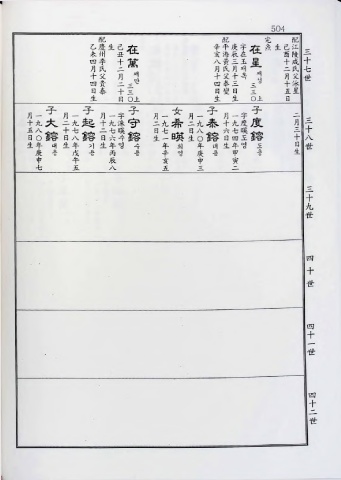 504
三十七世
配江陵咸氏父泳星
己酉十二月十五日
生
完亮
在星 재성 三三○上
字在玉 재옥
庚戌三月十三日生
配平海黃氏父泰燮
辛亥八月十四日生
在萬 재만 三三○上
己丑十二月二十日
生
配慶州李氏父貴泰
乙未四月十四日生
三十八世
二月三十日生
子度鎔 도용
字度暎 도영
一九七四年甲寅二
月十六日生
子泰鎔 태용
一九八○年庚申三
月二日生
女希暎 희영
一九七一年辛亥
月二日生
子守鎔 수용
字洙暎 수영
一九七六年丙辰八
月十二日生
子起鎔 기용
一九七八年戊午五
月二十日生
子大鎔 대용
一九八○年庚申七
月十五日生
三十九世
四十世
四十一世
四十二世